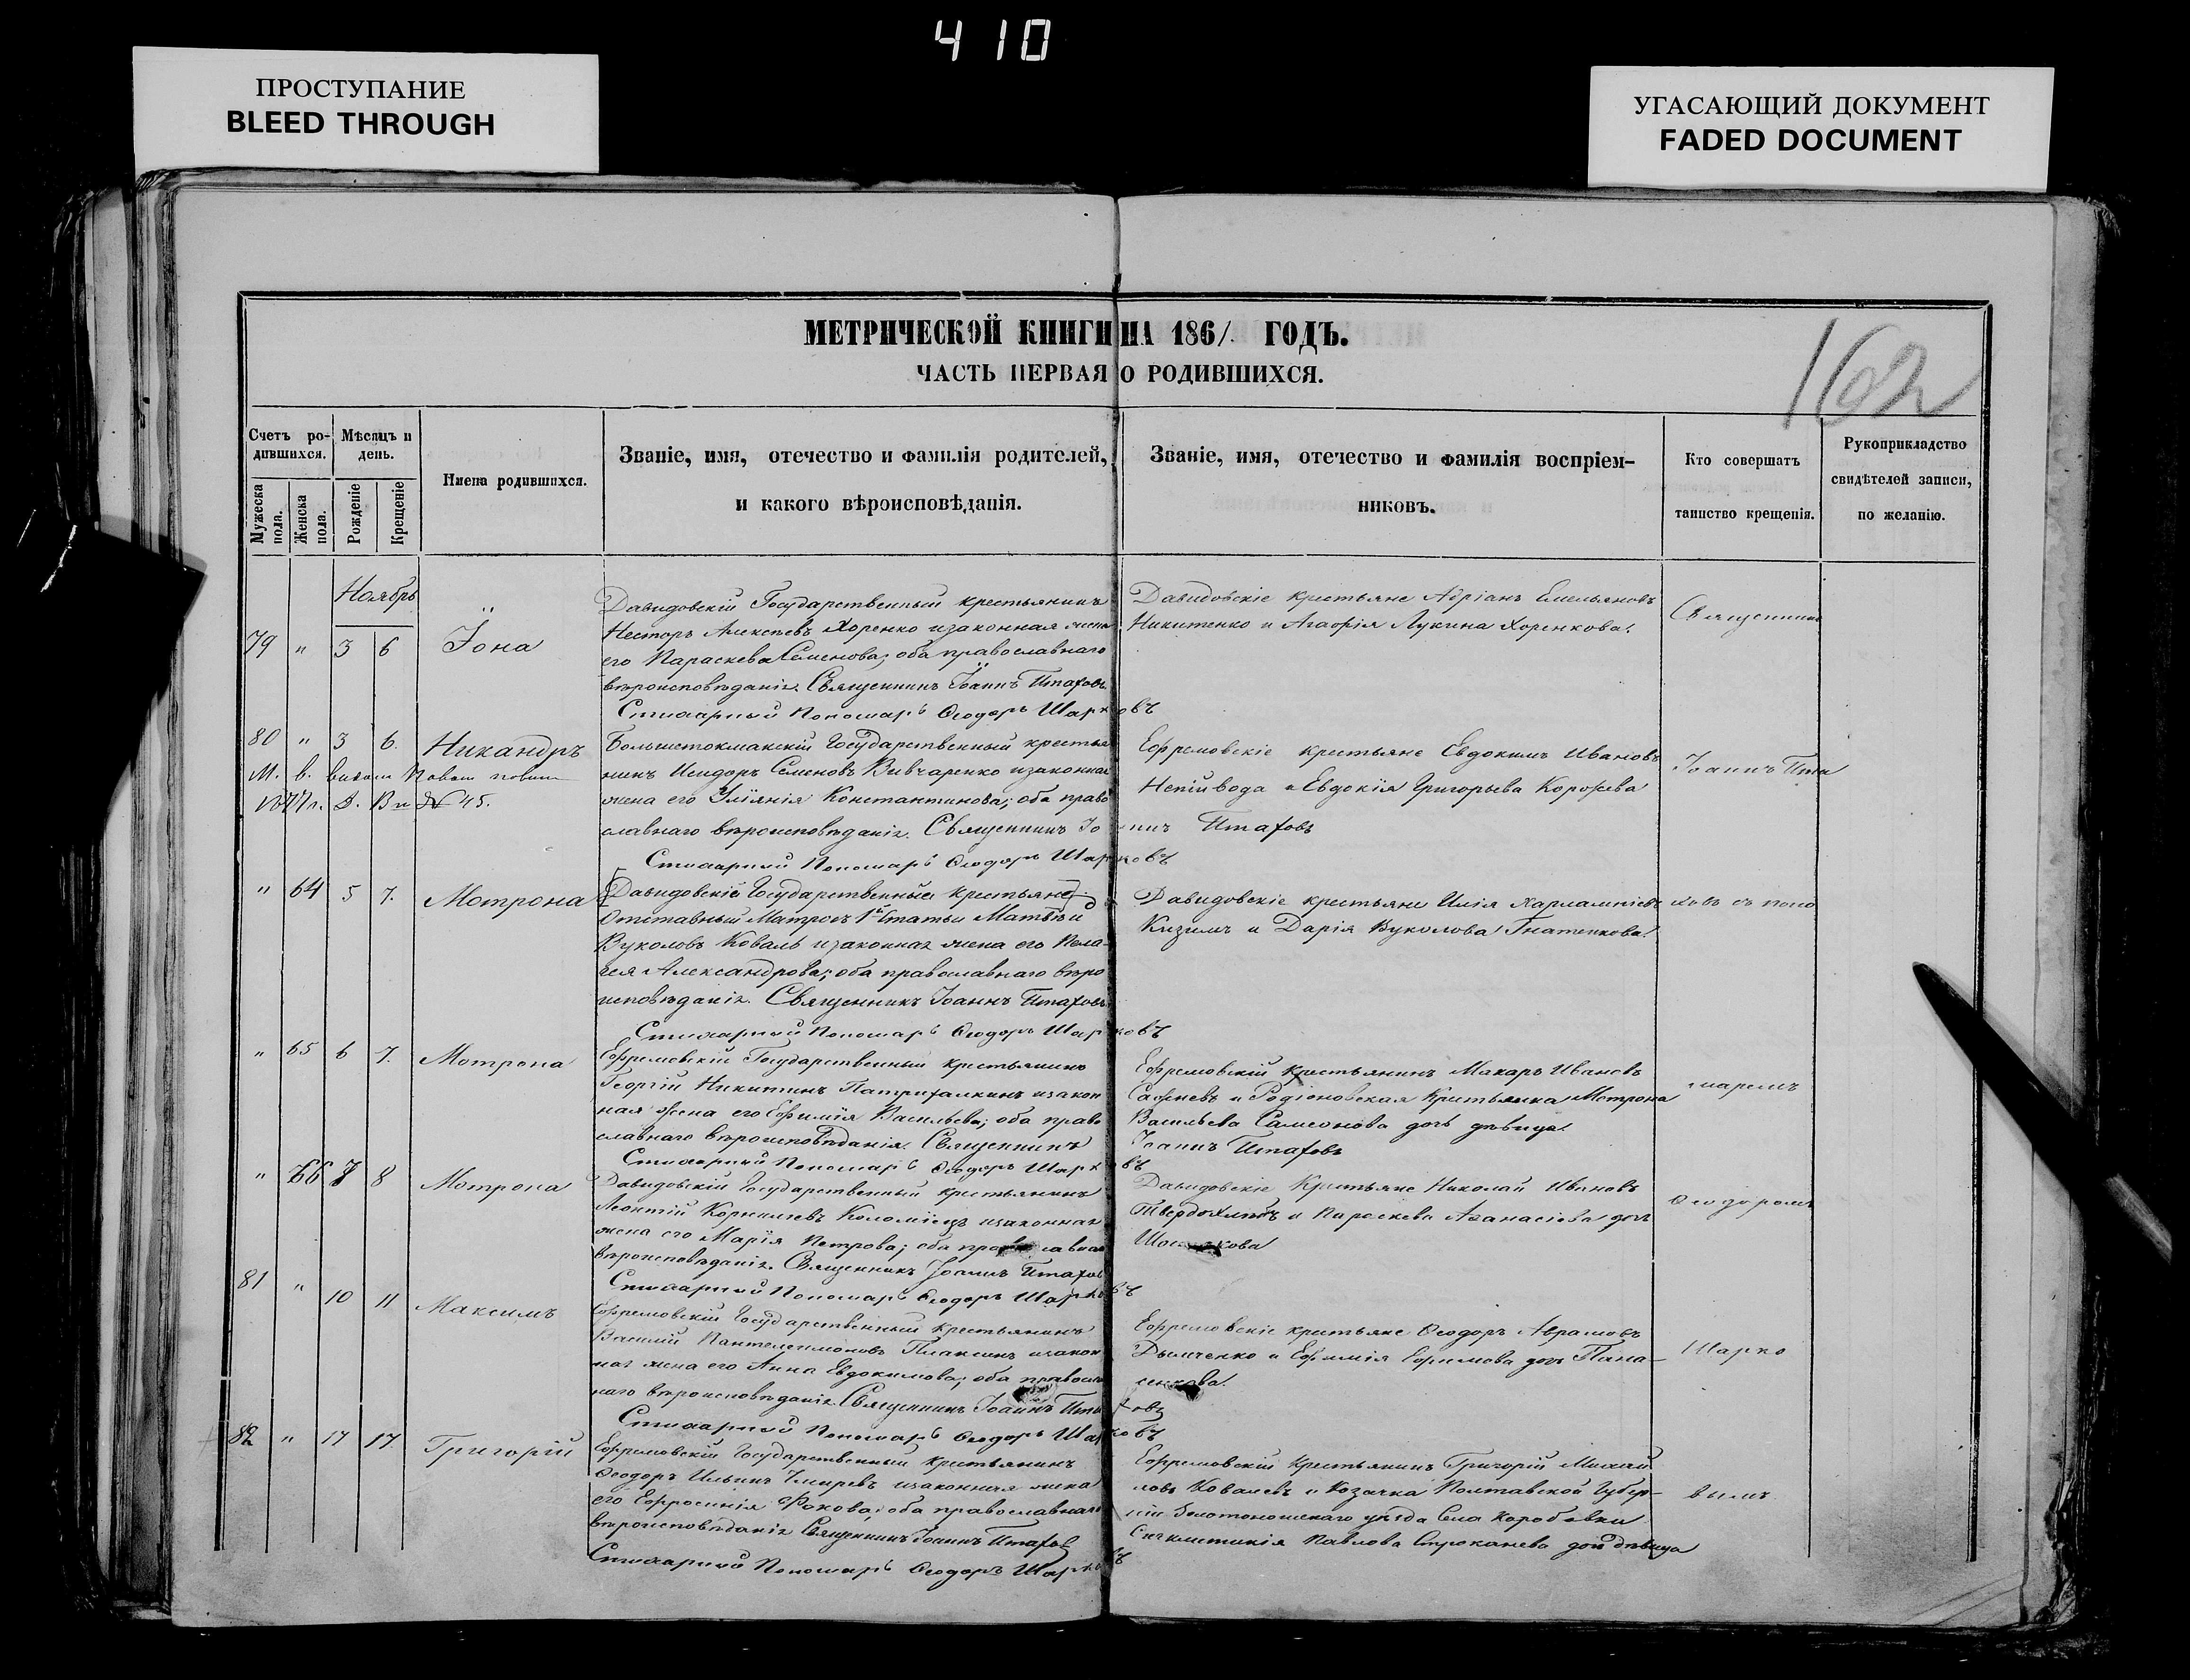 410
ПРОСТУПАНИЕ
BLEED THROUGH
УГАСАЮЩИЙ ДОКУМЕНТ
FADED DOCUMENT
МЕТРИЧЕСКОЙ КНИГИ НА 1861 ГОДЪ.
ЧАСТЬ ПЕРВАЯ О РОДИВШИХСЯ.
162
Счетъ ро-
дившихся.
Мужеска пола.
Женска пола.
Мѣсяцъ и
день.
Рожденіе
Крещеніе
Имена родившихся.
Званіе, имя, отечество и фамилія родителей,
и какого вѣроисповѣданія.
Званіе, имя, отечество и фамилія воспріем-
никовъ.
Кто совершатъ
таинство крещенія.
Рукоприкладство
свидѣтелей записи,
по желанію.
Ноябрь
79 " 3 6 Іона
Давидовскій Государственный крестьянинъ
Несторъ Алексѣевъ Хоренко и законная жена
его Параскева Семенова; оба православнаго
вѣроисповѣданія. Священникъ Іоаннъ Птаховъ
Стихарный Пономарь Ѳеодоръ Шарковъ
Давидовскіе крестьяне Адріанъ Емельяновъ
Никитенко и Агафія Лукина Хоренкова.
Священник
80 " 3 6. Никандръ
М. в. выдан
1877 г. № 45.
Большетокмакскій Государственный крестья
нинъ Исидоръ Семеновъ Вивчаренко и законная
жена его Уліянія Константинова; оба право
славнаго вѣроисповѣданія. Священникъ Іоаннъ Птаховъ
Стихарный Пономарь Ѳеодоръ Шарковъ
Ефремовскіе крестьяне Евдокимъ Ивановъ
Непійвода и Евдокія Григорьева
Іоаннъ Пта
" 64 5 7. Мотрона
Давидовскіе Государственные крестьяне
Отставный Матросъ 1й Статьи Матвѣй
Вуколовъ Коваль и законная жена его Пела-
гея Александрова; оба православнаго вѣро
исповѣданія. Священникъ Іоаннъ Птаховъ
Стихарный Пономарь Ѳеодоръ Шарковъ
Давидовскіе крестьяне Илія Харлампіевъ
Кизимъ и Дарія Вуколова Гнатенкова.
ховъ съ поно
" 65 6 7. Мотрона
Ефремовскій Государственный крестьянинъ
Георгій Никитинъ и закон
ная жена его Ефимія Васильева; оба право
славнаго вѣроисповѣданія. Священникъ
Стихарный Пономарь Ѳеодоръ Шарковъ
Ефремовскій крестьянинъ Макаръ Ивановъ
и Родіоновская Крестьянка Мотрона
Васильева Самсонова дочь дѣвица.
Іоаннъ Птаховъ
маремъ
" 66 7 8 Мотрона
Давидовскій Государственный крестьянинъ
Леонтій Корниліевъ Коломіецъ и законная
жена его Марія Петрова; оба православна
вѣроисповѣданія. Священникъ Іоаннъ Птахов
Стихарный Пономарь Ѳеодоръ Шарковъ
Давидовскіе Крестьяне Николай Ивановъ
Твердохлѣбъ и Параскева Аѳанасіева дочь
Ѳеодоромъ
81 " 10 11 Максимъ
Ефремовскій Государственный Крестьянинъ
Василій Пантелеимоновъ Плаксинъ и закон
ная жена его Анна Евдокимова; оба правосла
наго вѣроисповѣданія. Священникъ Іоаннъ Птаховъ
Стихарный Пономарь Ѳеодоръ Шарковъ
Ефремовскіе крестьяне Ѳеодоръ Аврамовъ
Дымченко и Ефимія Ефимова дочь Пана-
сенкова.
Шарко
82 " 17 17. Григорій
Ефремовскій Государственный Крестьянинъ
Ѳеодоръ Ильинъ и законная жена
его Ефросинія Фокова; оба православнаго
вѣроисповѣданія Священникъ Іоаннъ Птахов
Стихарный Пономарь Ѳеодоръ Шарковъ
Ефремовскій Крестьянинъ Григорій Михай
ловъ Ковалевъ и Козачка Полтавской Губер-
ніи Золотоношскаго уѣзда Села Коробовки
Синклитикія Павлова Строканева дочь дѣвица
вымъ